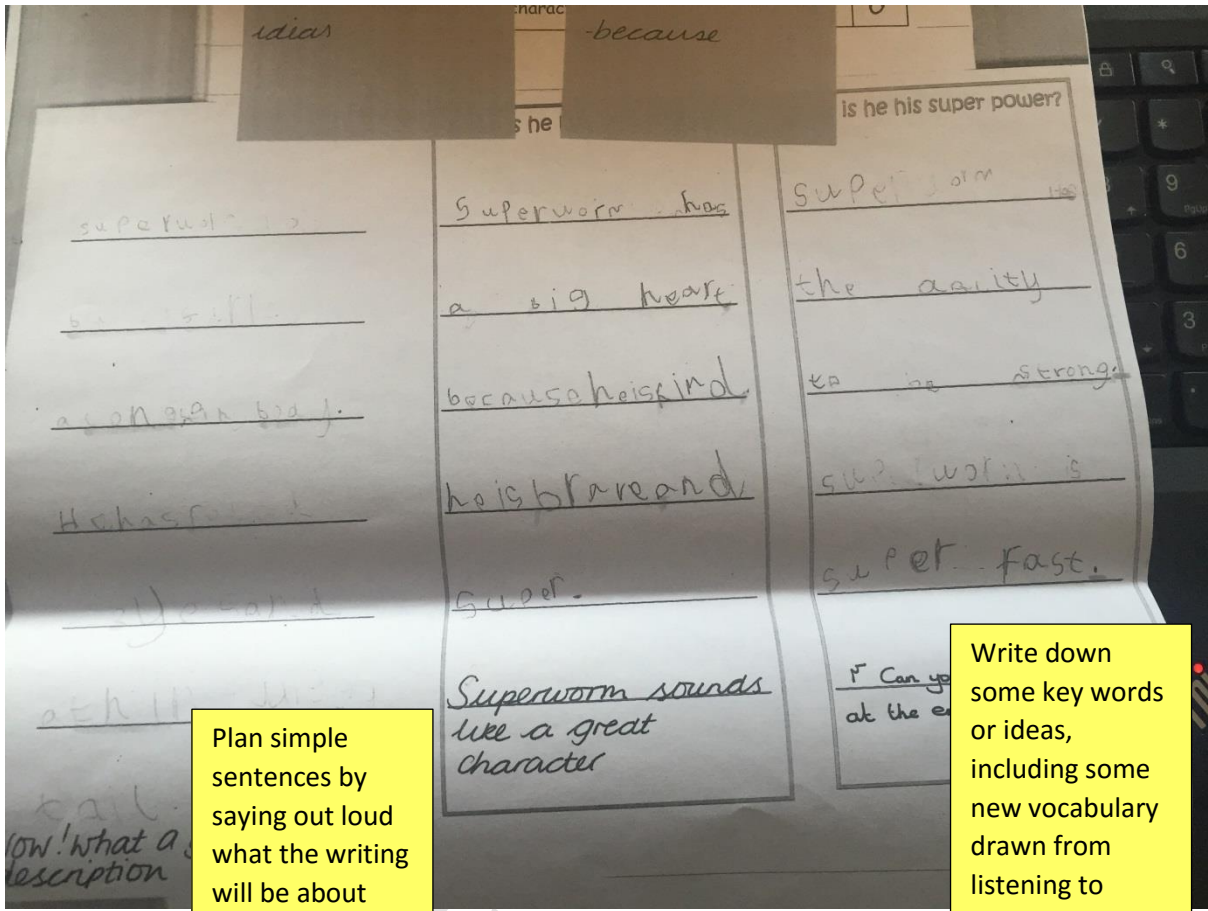 charac
idias
-because
s he
is he his super power?
superwor
a
body.
He has
eye and
a thin
tail.
Wow! what a
description
Superworm has
a big heart
because he is kind.
he is brave and
super.
Superworm sounds
like a great
character
Superworm has
the aaility
to be strong.
superworm is
super fast.
r Can yo
at the e
Plan simple
sentences by
saying out loud
what the writing
will be about
Write down
some key words
or ideas,
including some
new vocabulary
drawn from
listening to
9
6
3